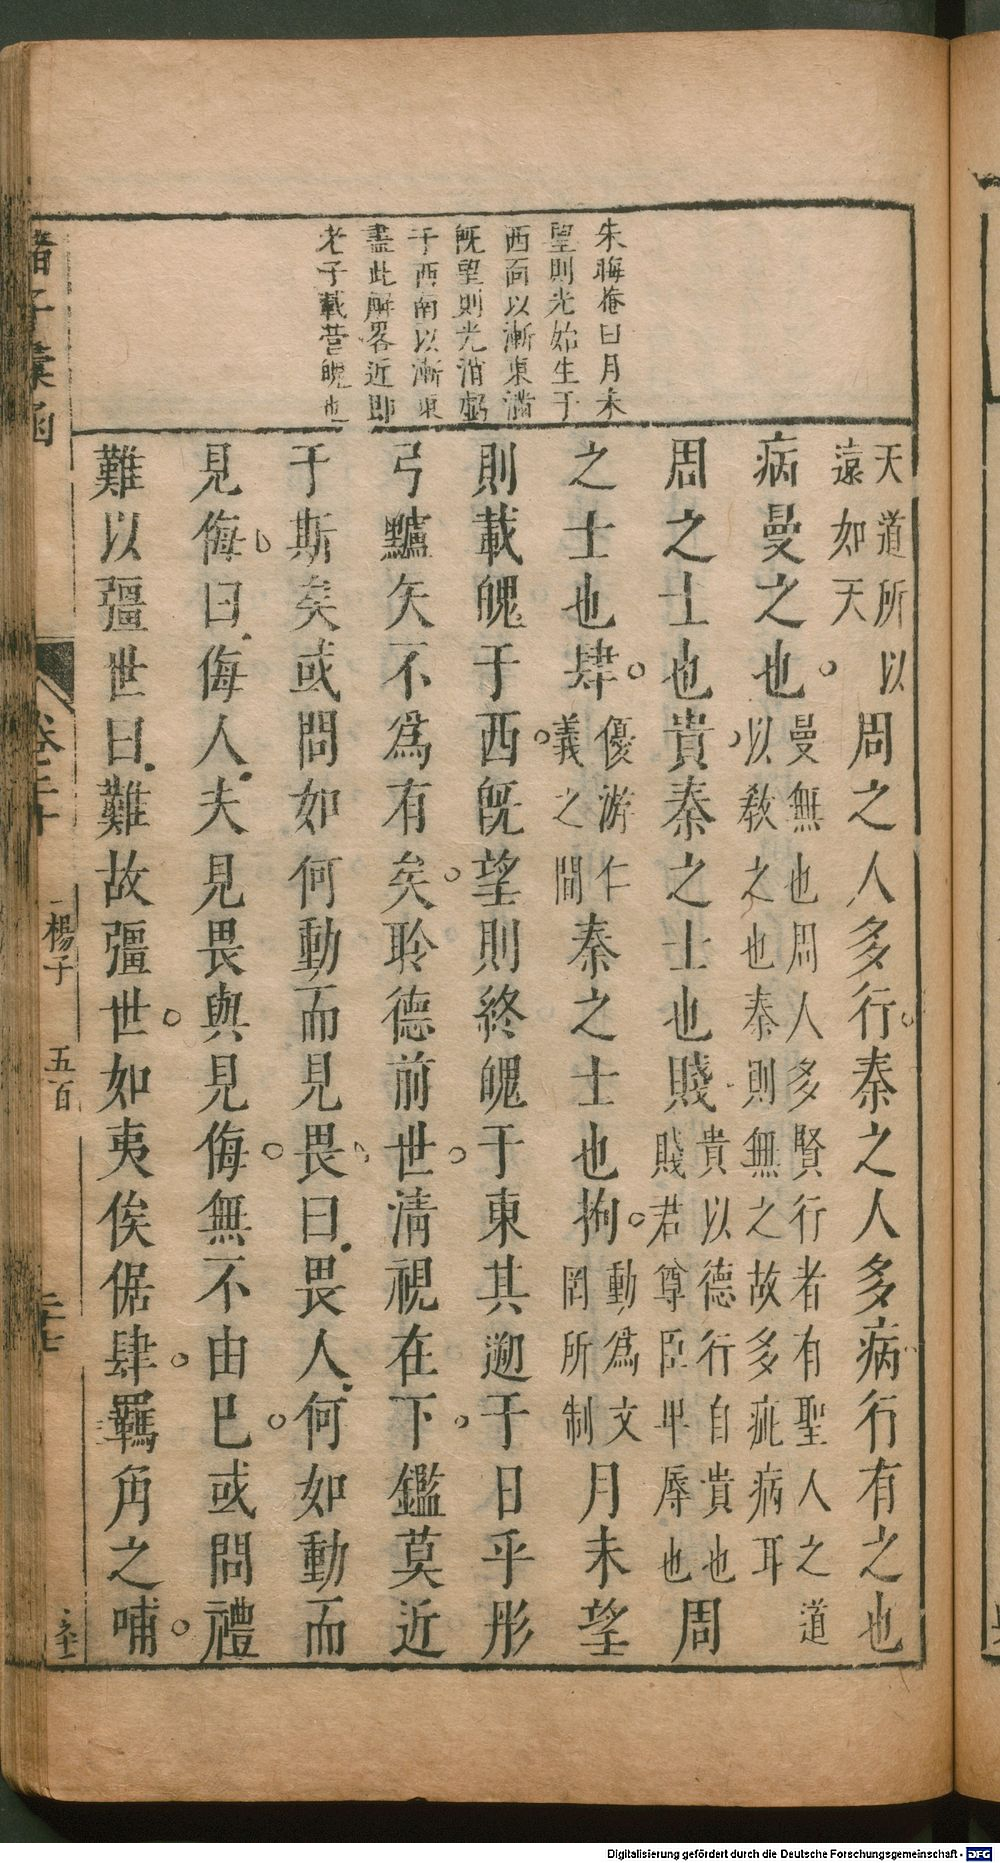 朱晦菴曰月未
望則光始生于
西面以漸東滿
旣望則光消虧
于西南以漸東
盡此解畧近卽
老子載營魄也
天道所以
遠如天
周之人多行秦之人多病行有之也
病曼之也
曼無也周人多賢行者有聖人之道
以敎之也秦則無之故多疵病耳
周之士也貴秦之士也賤
貴以德行自貴也
賤君尊臣卑辱也
周
之士也肆
優游仁
義之間
秦之士也拘
動為文
罔所制
月未望
則載魄于西旣望則終魄于東其遡于日乎彤
弓黸矢不為有矣聆德前世清視在下鑑莫近
于斯矣或問如何動而見畏曰畏人何如動而
見侮曰侮人夫見畏與見侮無不由已或問禮
難以彊世曰難故彊世如夷俟倨肆羈角之哺
諸子彙函
楊子
五百
Digitalisierung gefördert durch die Deutsche Forschungsgemeinschaft - DFG